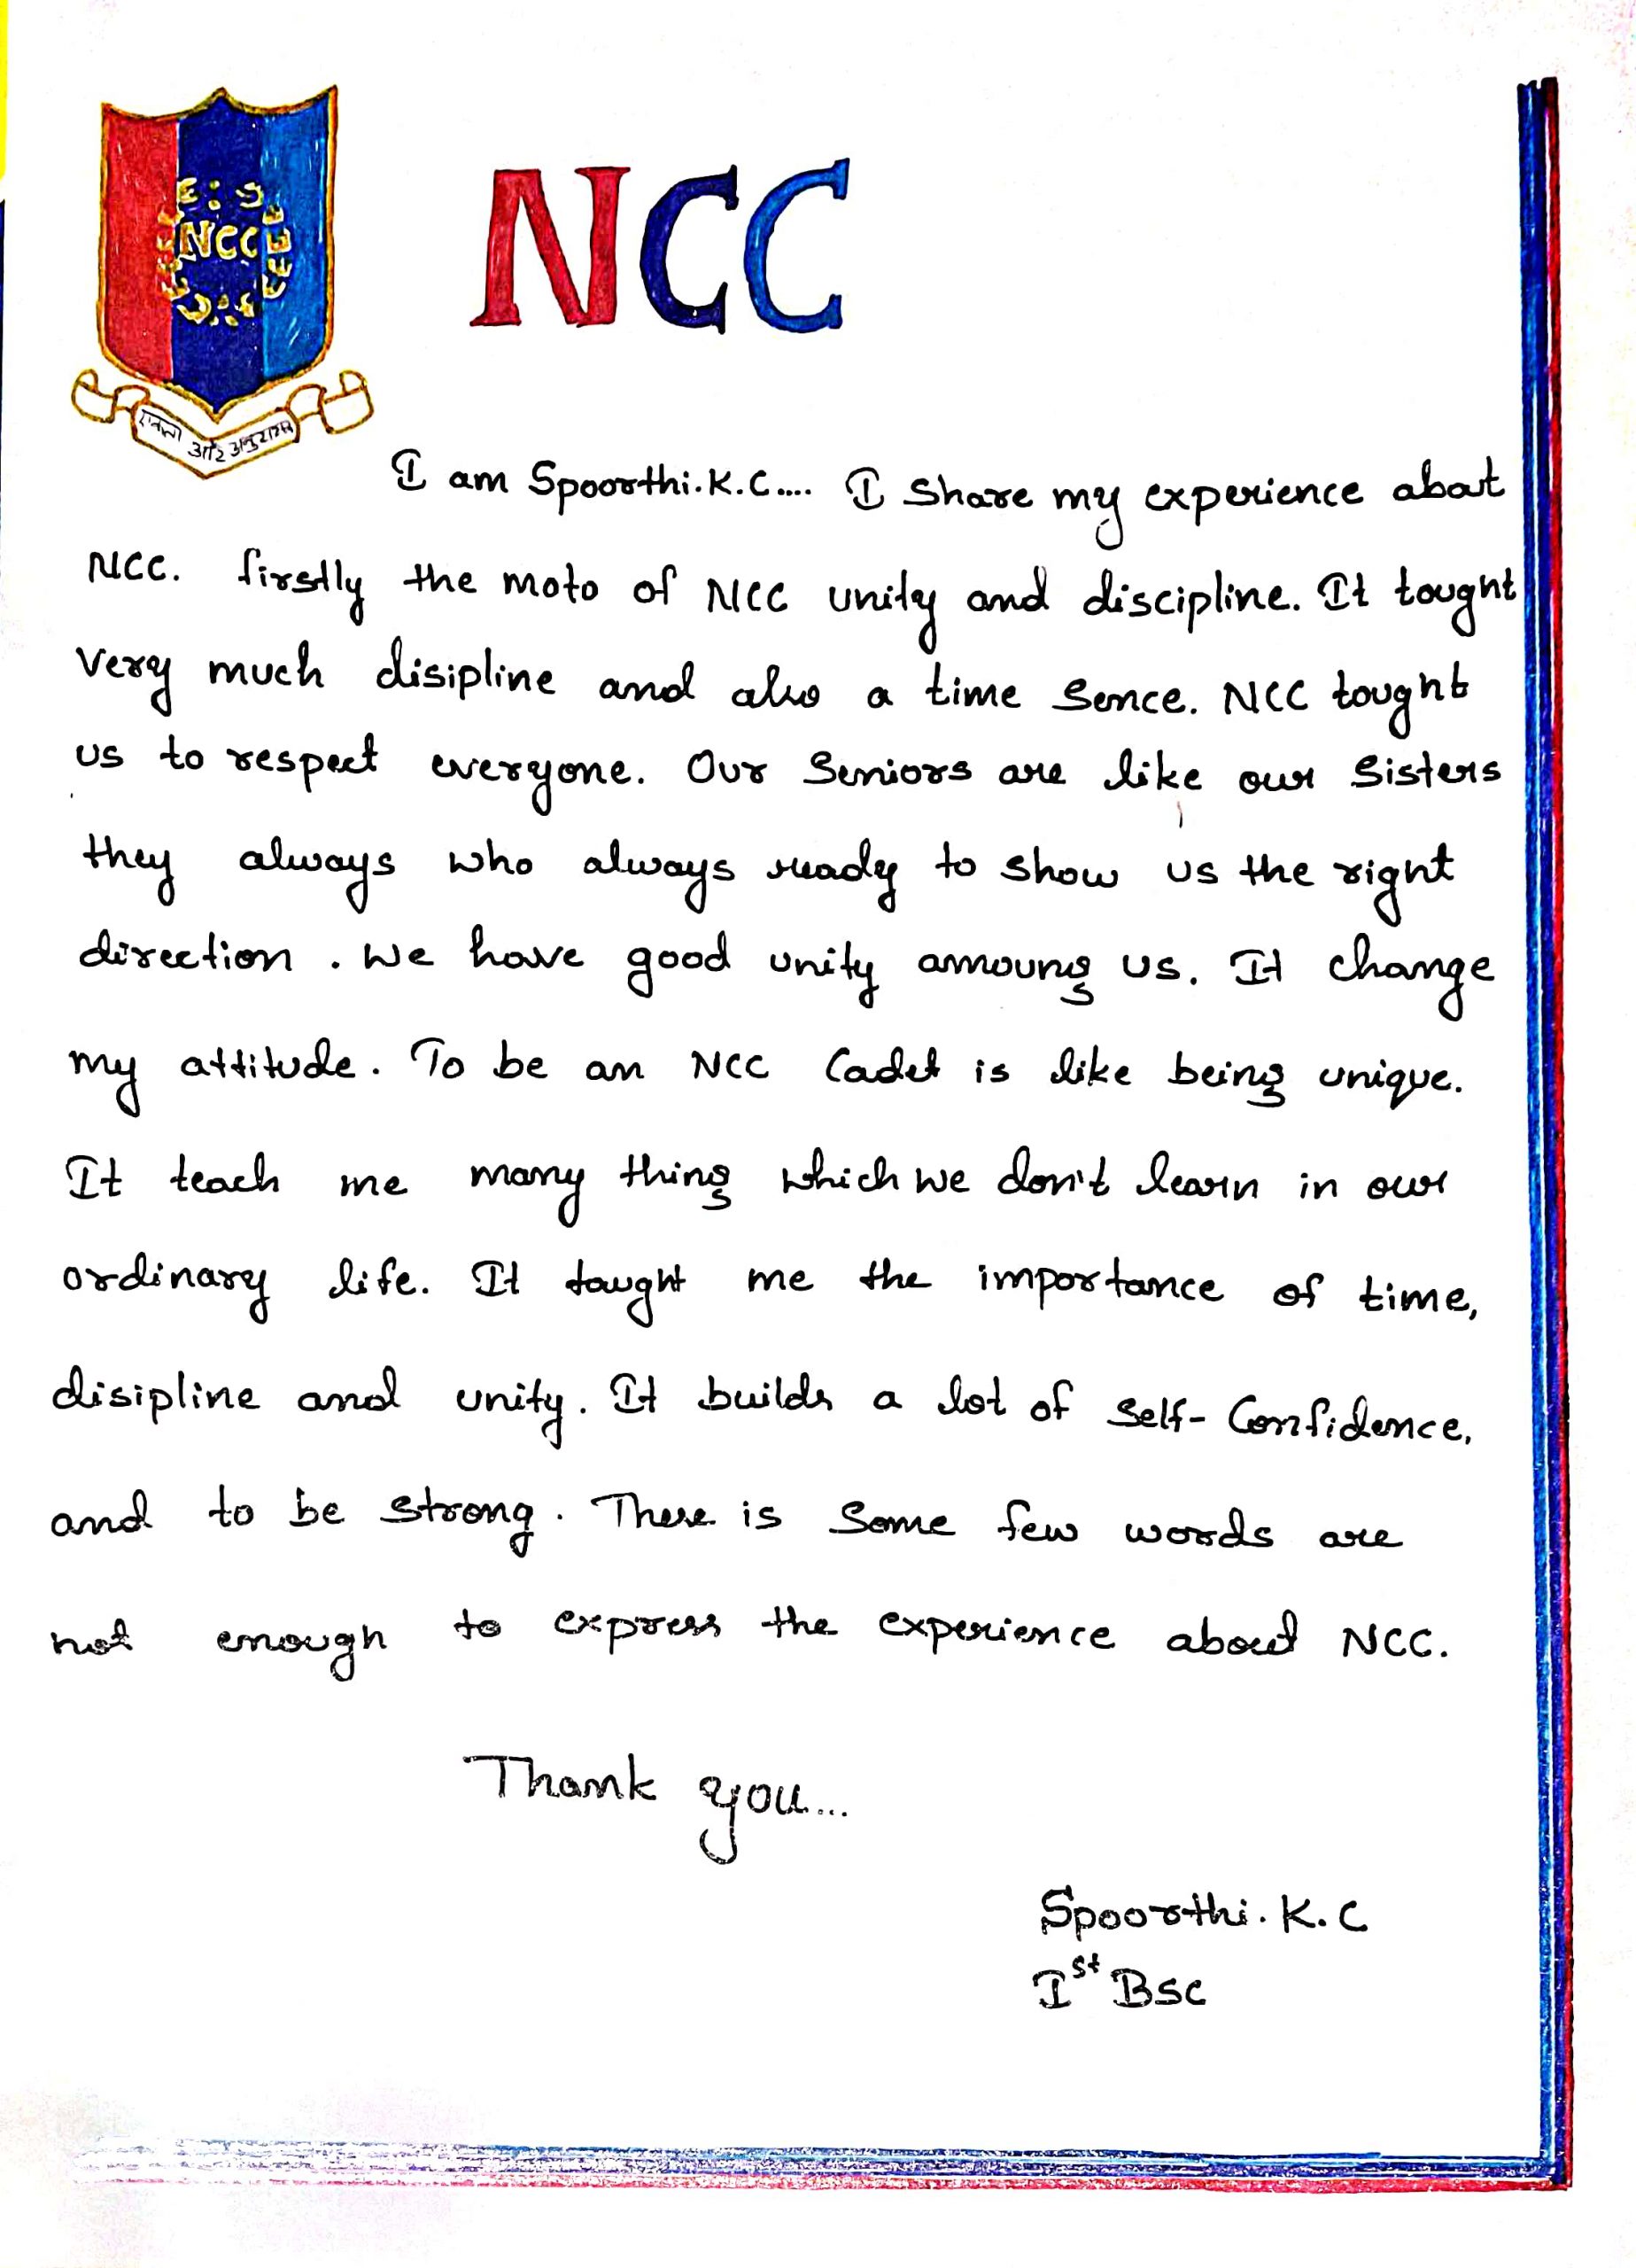 NCC
NCC
एकता और अनुशासन
I am Spoorthi.K.C.... I Share my experience about
NCC. firstly the moto of NCC unity and discipline. It tought
very much disipline and also a time Sence. NCC tought
us to respect everyone. Our Seniors are like our Sisters
they always who always ready to show us the right
direction. We have good unity amoung us. It change
my attitude. To be an NCC Cadet is like being unique.
It teach me many thing which we don't learn in our
ordinary life. It taught me the importance of time,
disipline and unity. It builds a lot of Self-Confidence,
and to be strong. There is Some few words are
not enough to express the experience about NCC.
Thank you...
Spoorthi.K.C
Ist Bsc